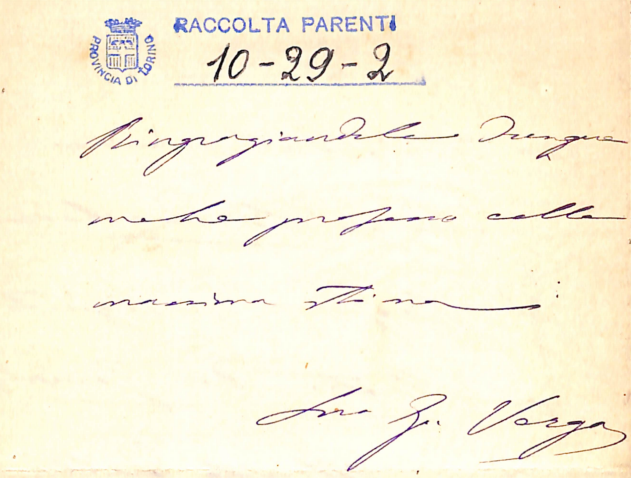 RACCOLTA PARENTI
PROVINCIA DI TORINO
10-29-2
Ringraziandola dunque
me le professo colla
massima stima
Suo G. Verga